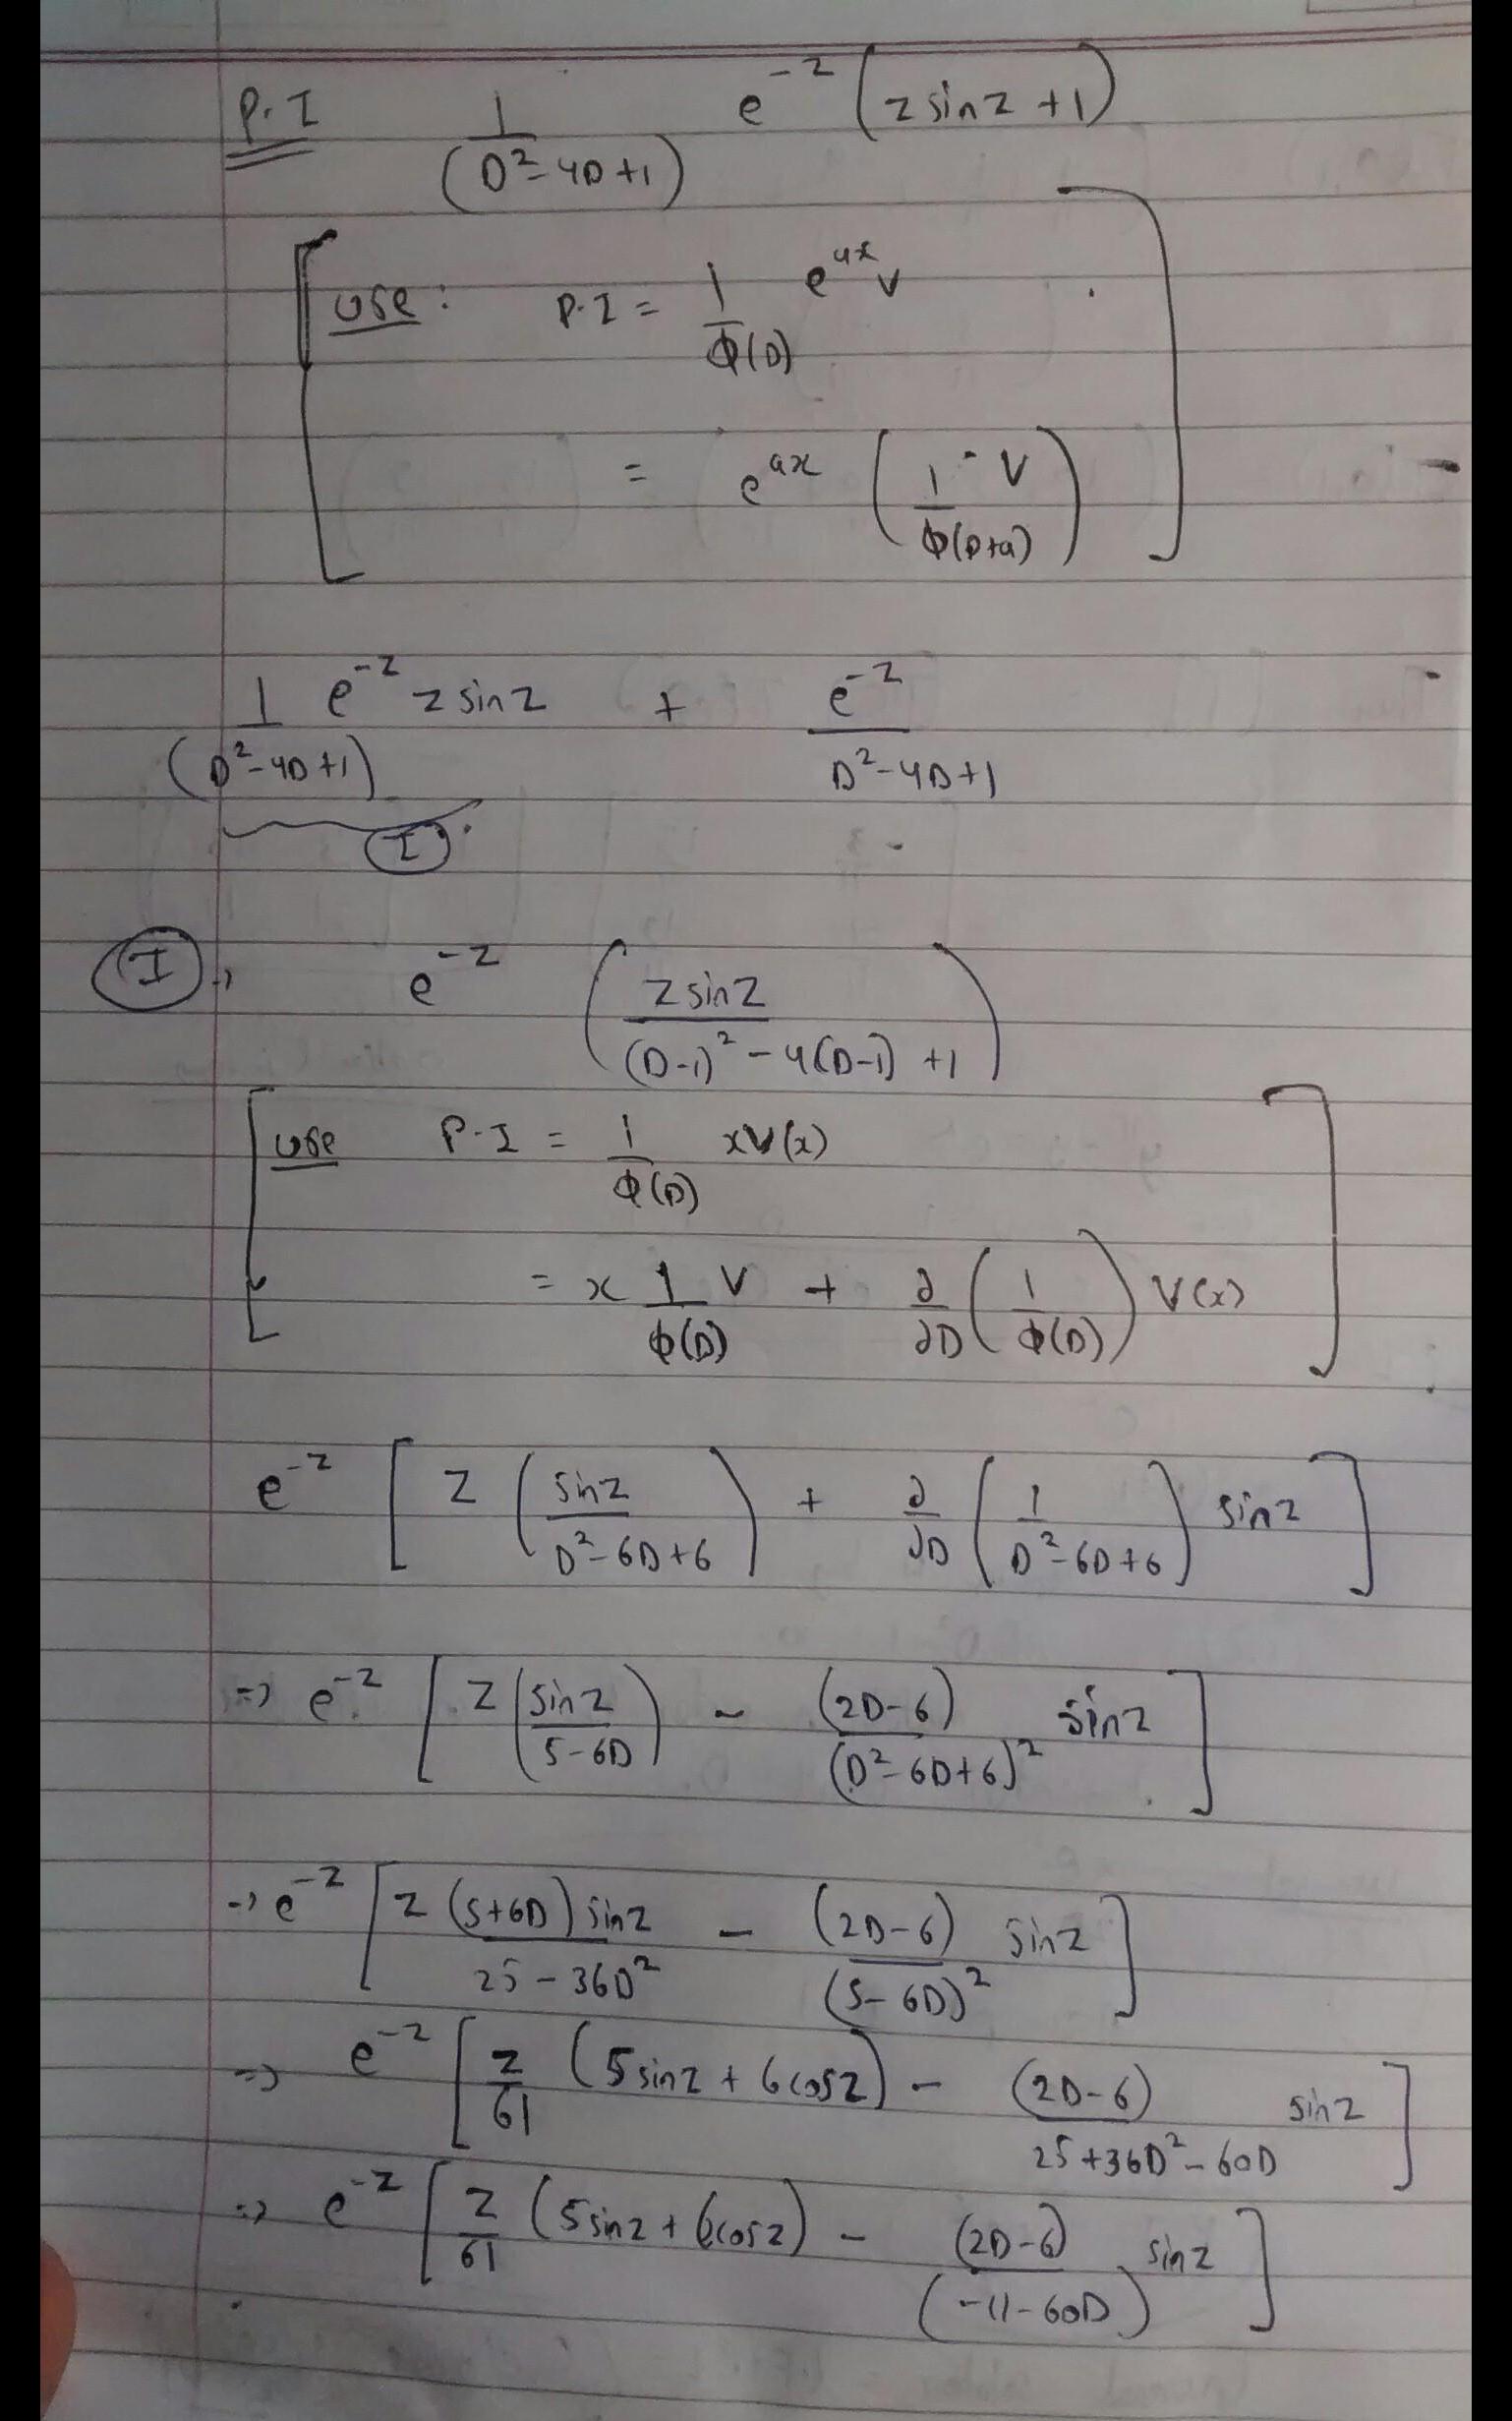 P.I 1/(D²-4D+1) e^{-z} (z sin z + 1)
use : P.I = 1/ϕ(D) e^{ax} V
= e^{ax} (1/ϕ(D+a) V)
1/(D²-4D+1) e^{-z} z sin z + e^{-z}/D²-4D+1
I
I → e^{-z} (z sin z/(D-1)² - 4(D-1) + 1)
use P.I = 1/ϕ(D) xV(x)
= x 1/ϕ(D) V + ∂/∂D (1/ϕ(D)) V(x)
e^{-z} [z (sin z/D²-6D+6) + ∂/∂D (1/D²-6D+6) sin z]
=> e^{-z} [z (sin z/5-6D) - (2D-6)/(D²-6D+6)² sin z]
=> e^{-z} [z (5+6D) sin z/25-36D² - (2D-6)/(5-6D)² sin z]
=> e^{-z} [z/61 (5 sin z + 6 cos z) - (2D-6)/25+36D²-60D sin z]
=> e^{-z} [z/61 (5 sin z + 6 cos z) - (2D-6)/(-11-60D) sin z]